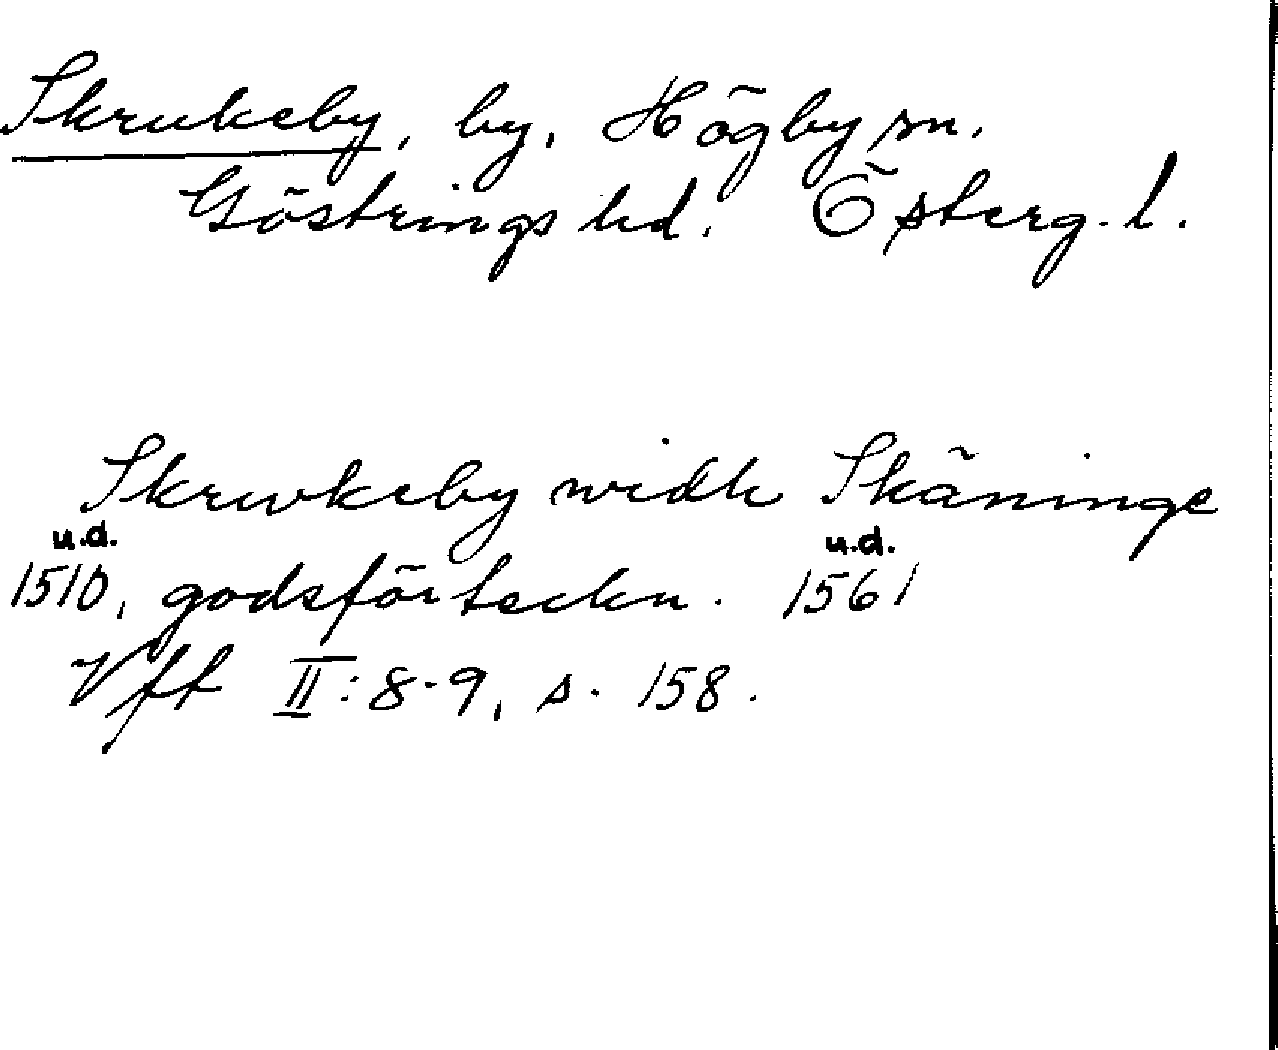 Skrukeby, by, Högby sn.
Göstrings hd. Österg. l.
Skrwkeby widh Skäninge
u.d. u.d.
1510, godsförteckn. 1561
Vff II: 8-9, s. 158.